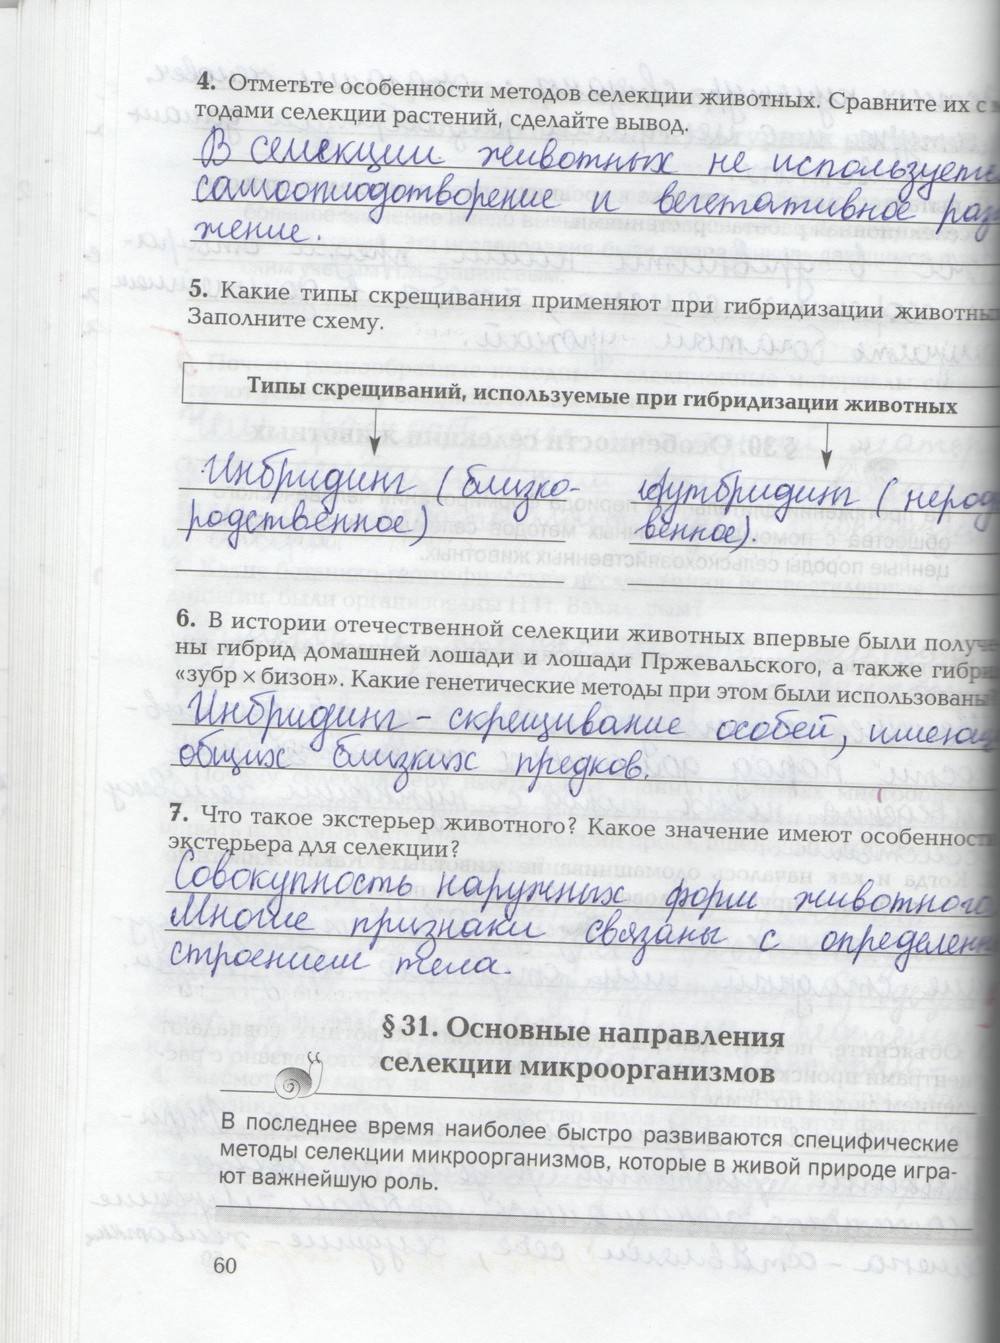 4. Отметьте особенности методов селекции животных. Сравните их с
тодами селекции растений, сделайте вывод.
В селекции животных не используется
самоопиодотворение и вегетативное раз
жение.
5. Какие типы скрещивания применяют при гибридизации животны
Заполните схему.
Типы скрещиваний, используемые при гибридизации животных
Инбридинг (близко-
родственное)
Аутбридинг (нерод
венное).
6. В истории отечественной селекции животных впервые были получе
ны гибрид домашней лошади и лошади Пржевальского, а также гибри
«зубр × бизон». Какие генетические методы при этом были использованы
Инбридинг - скрещивание особей, имеющ
общих близких предков.
7. Что такое экстерьер животного? Какое значение имеют особенност
экстерьера для селекции?
Совокупность наружных форм животного
Многие признаки связаны с определенн
строением тела.
§ 31. Основные направления
селекции микроорганизмов
В последнее время наиболее быстро развиваются специфические
методы селекции микроорганизмов, которые в живой природе игра-
ют важнейшую роль.
60